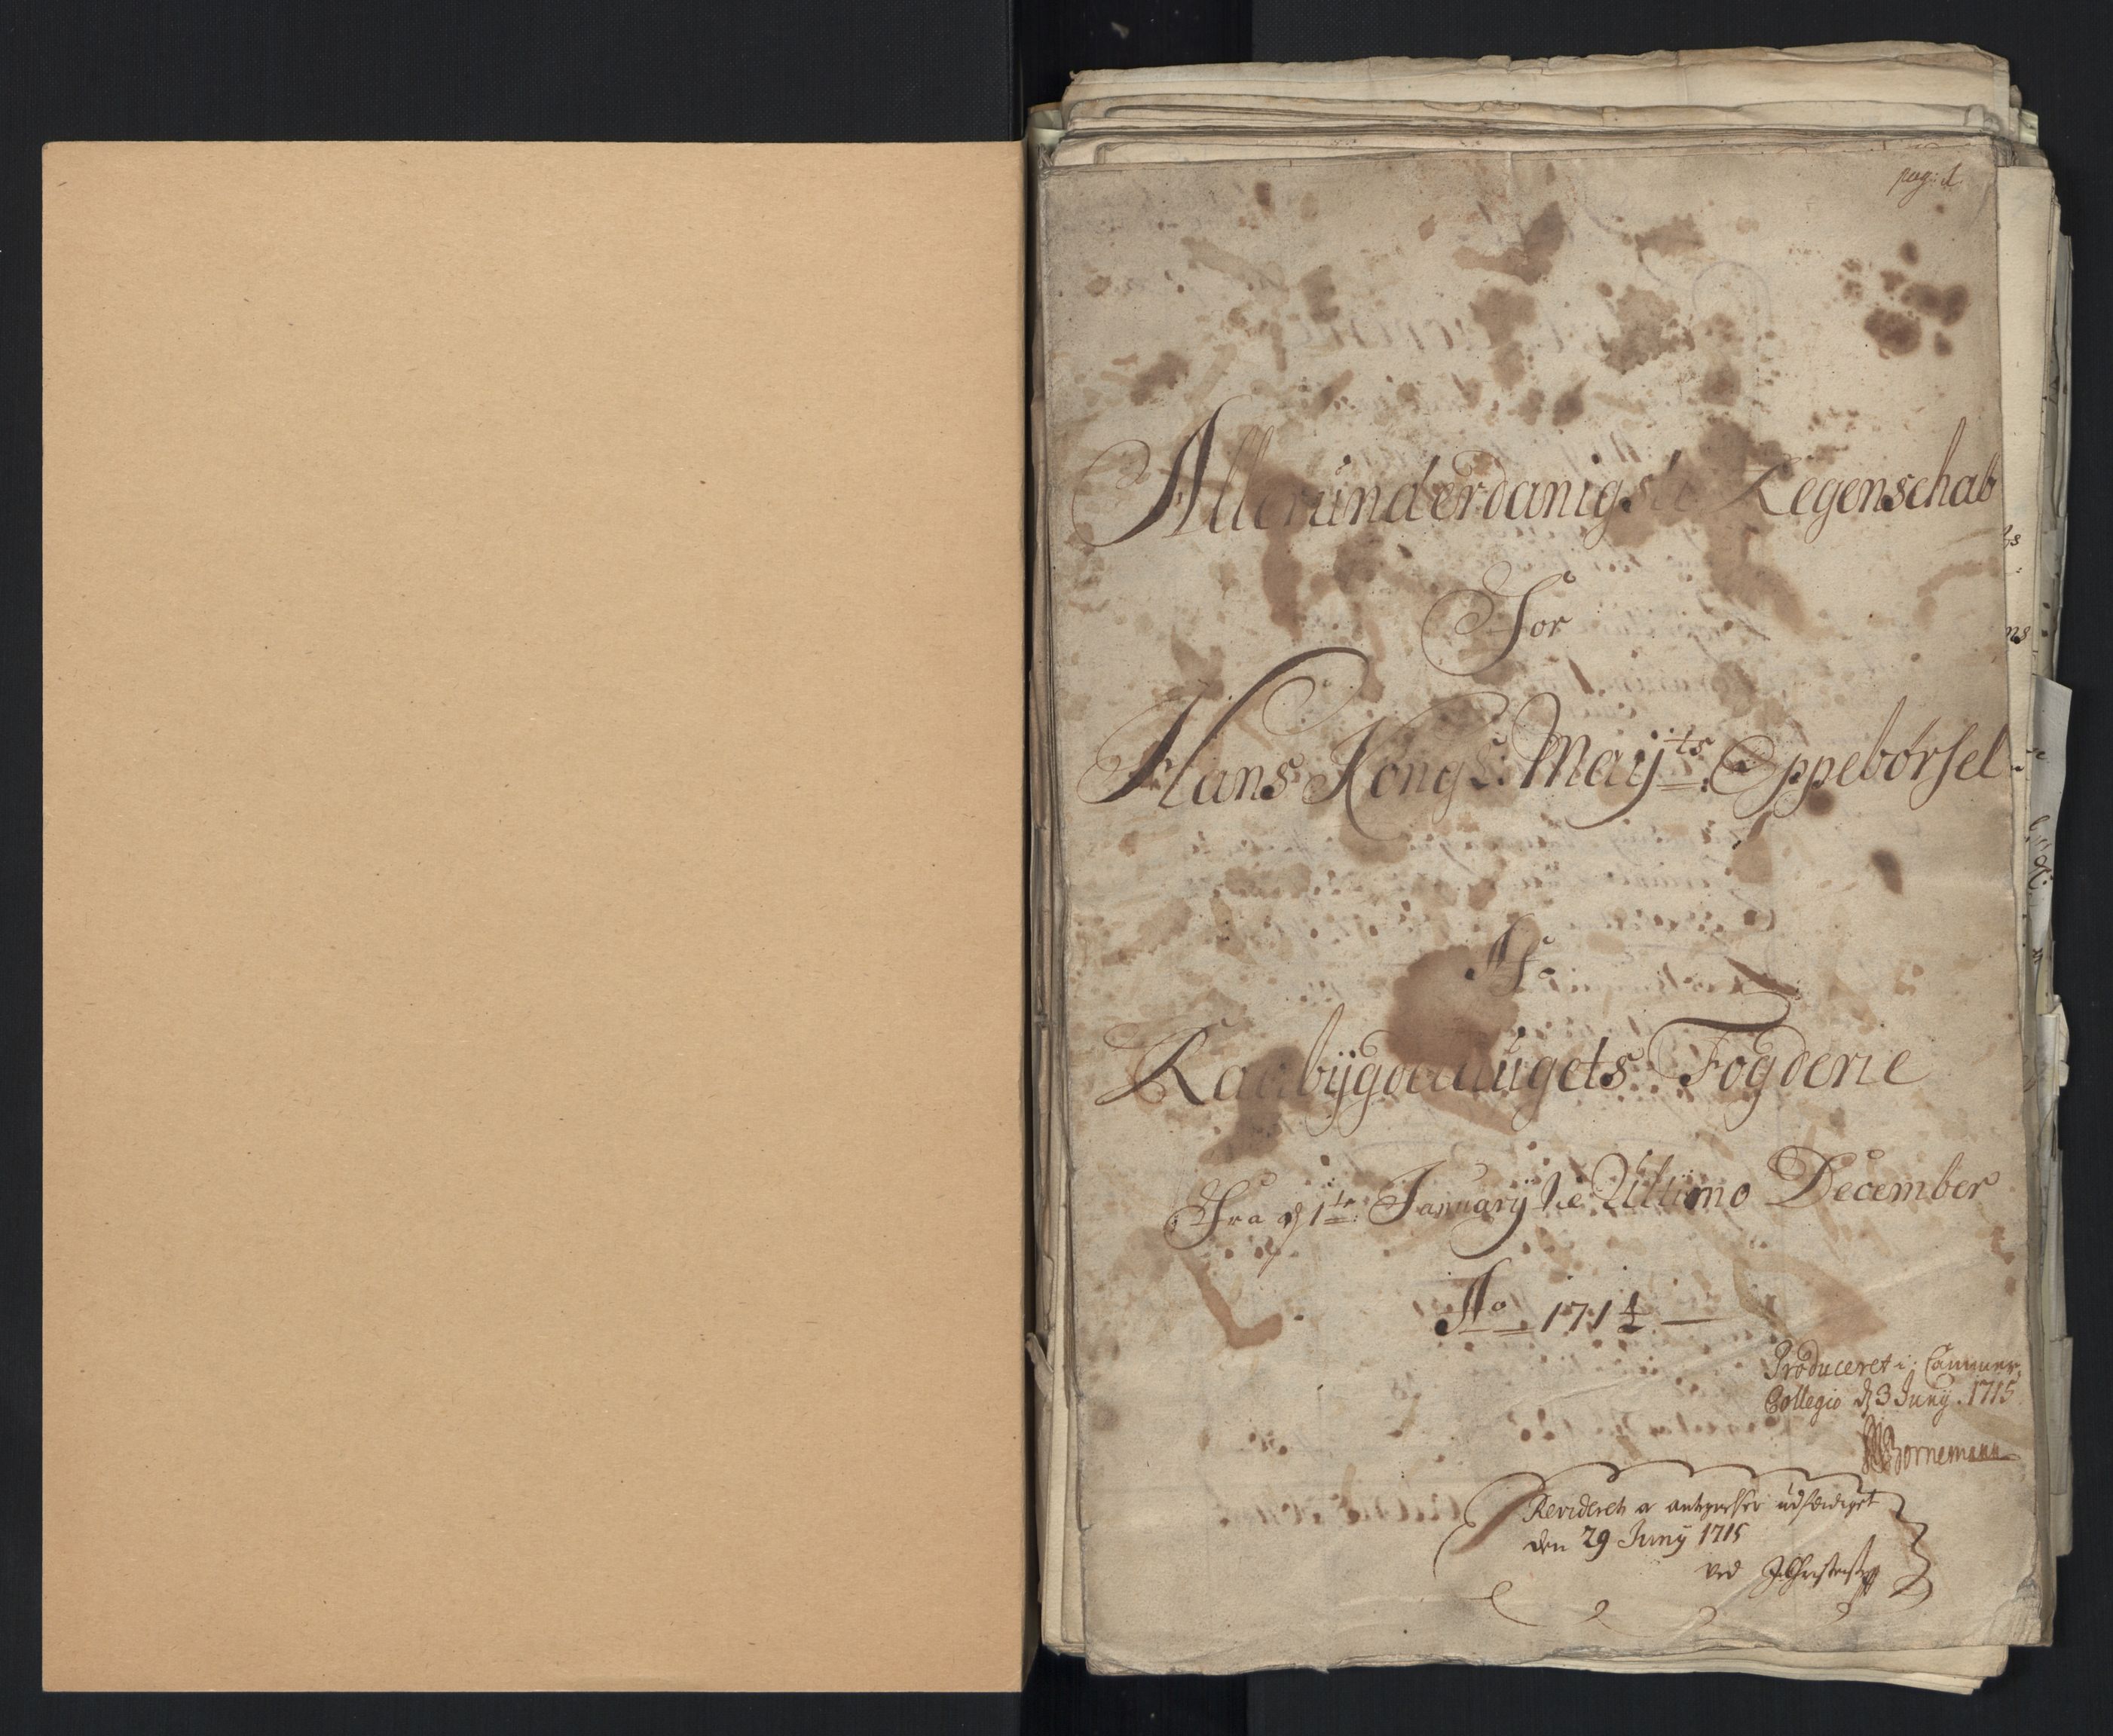 pag: 1
Allerunderdanigste Regenschab
For
Hans Kongl: Mayts: Oppebørsel
Af
Raabygdelaugets Fogderie
Fra d 1te January til Ultimo December
Ao 1714
Produceret i Cammer
Collegio d 3 Juny. 1715
Bornemann
Revideret og antegnelser udfærdiget
den 29 Juny 1715
ved